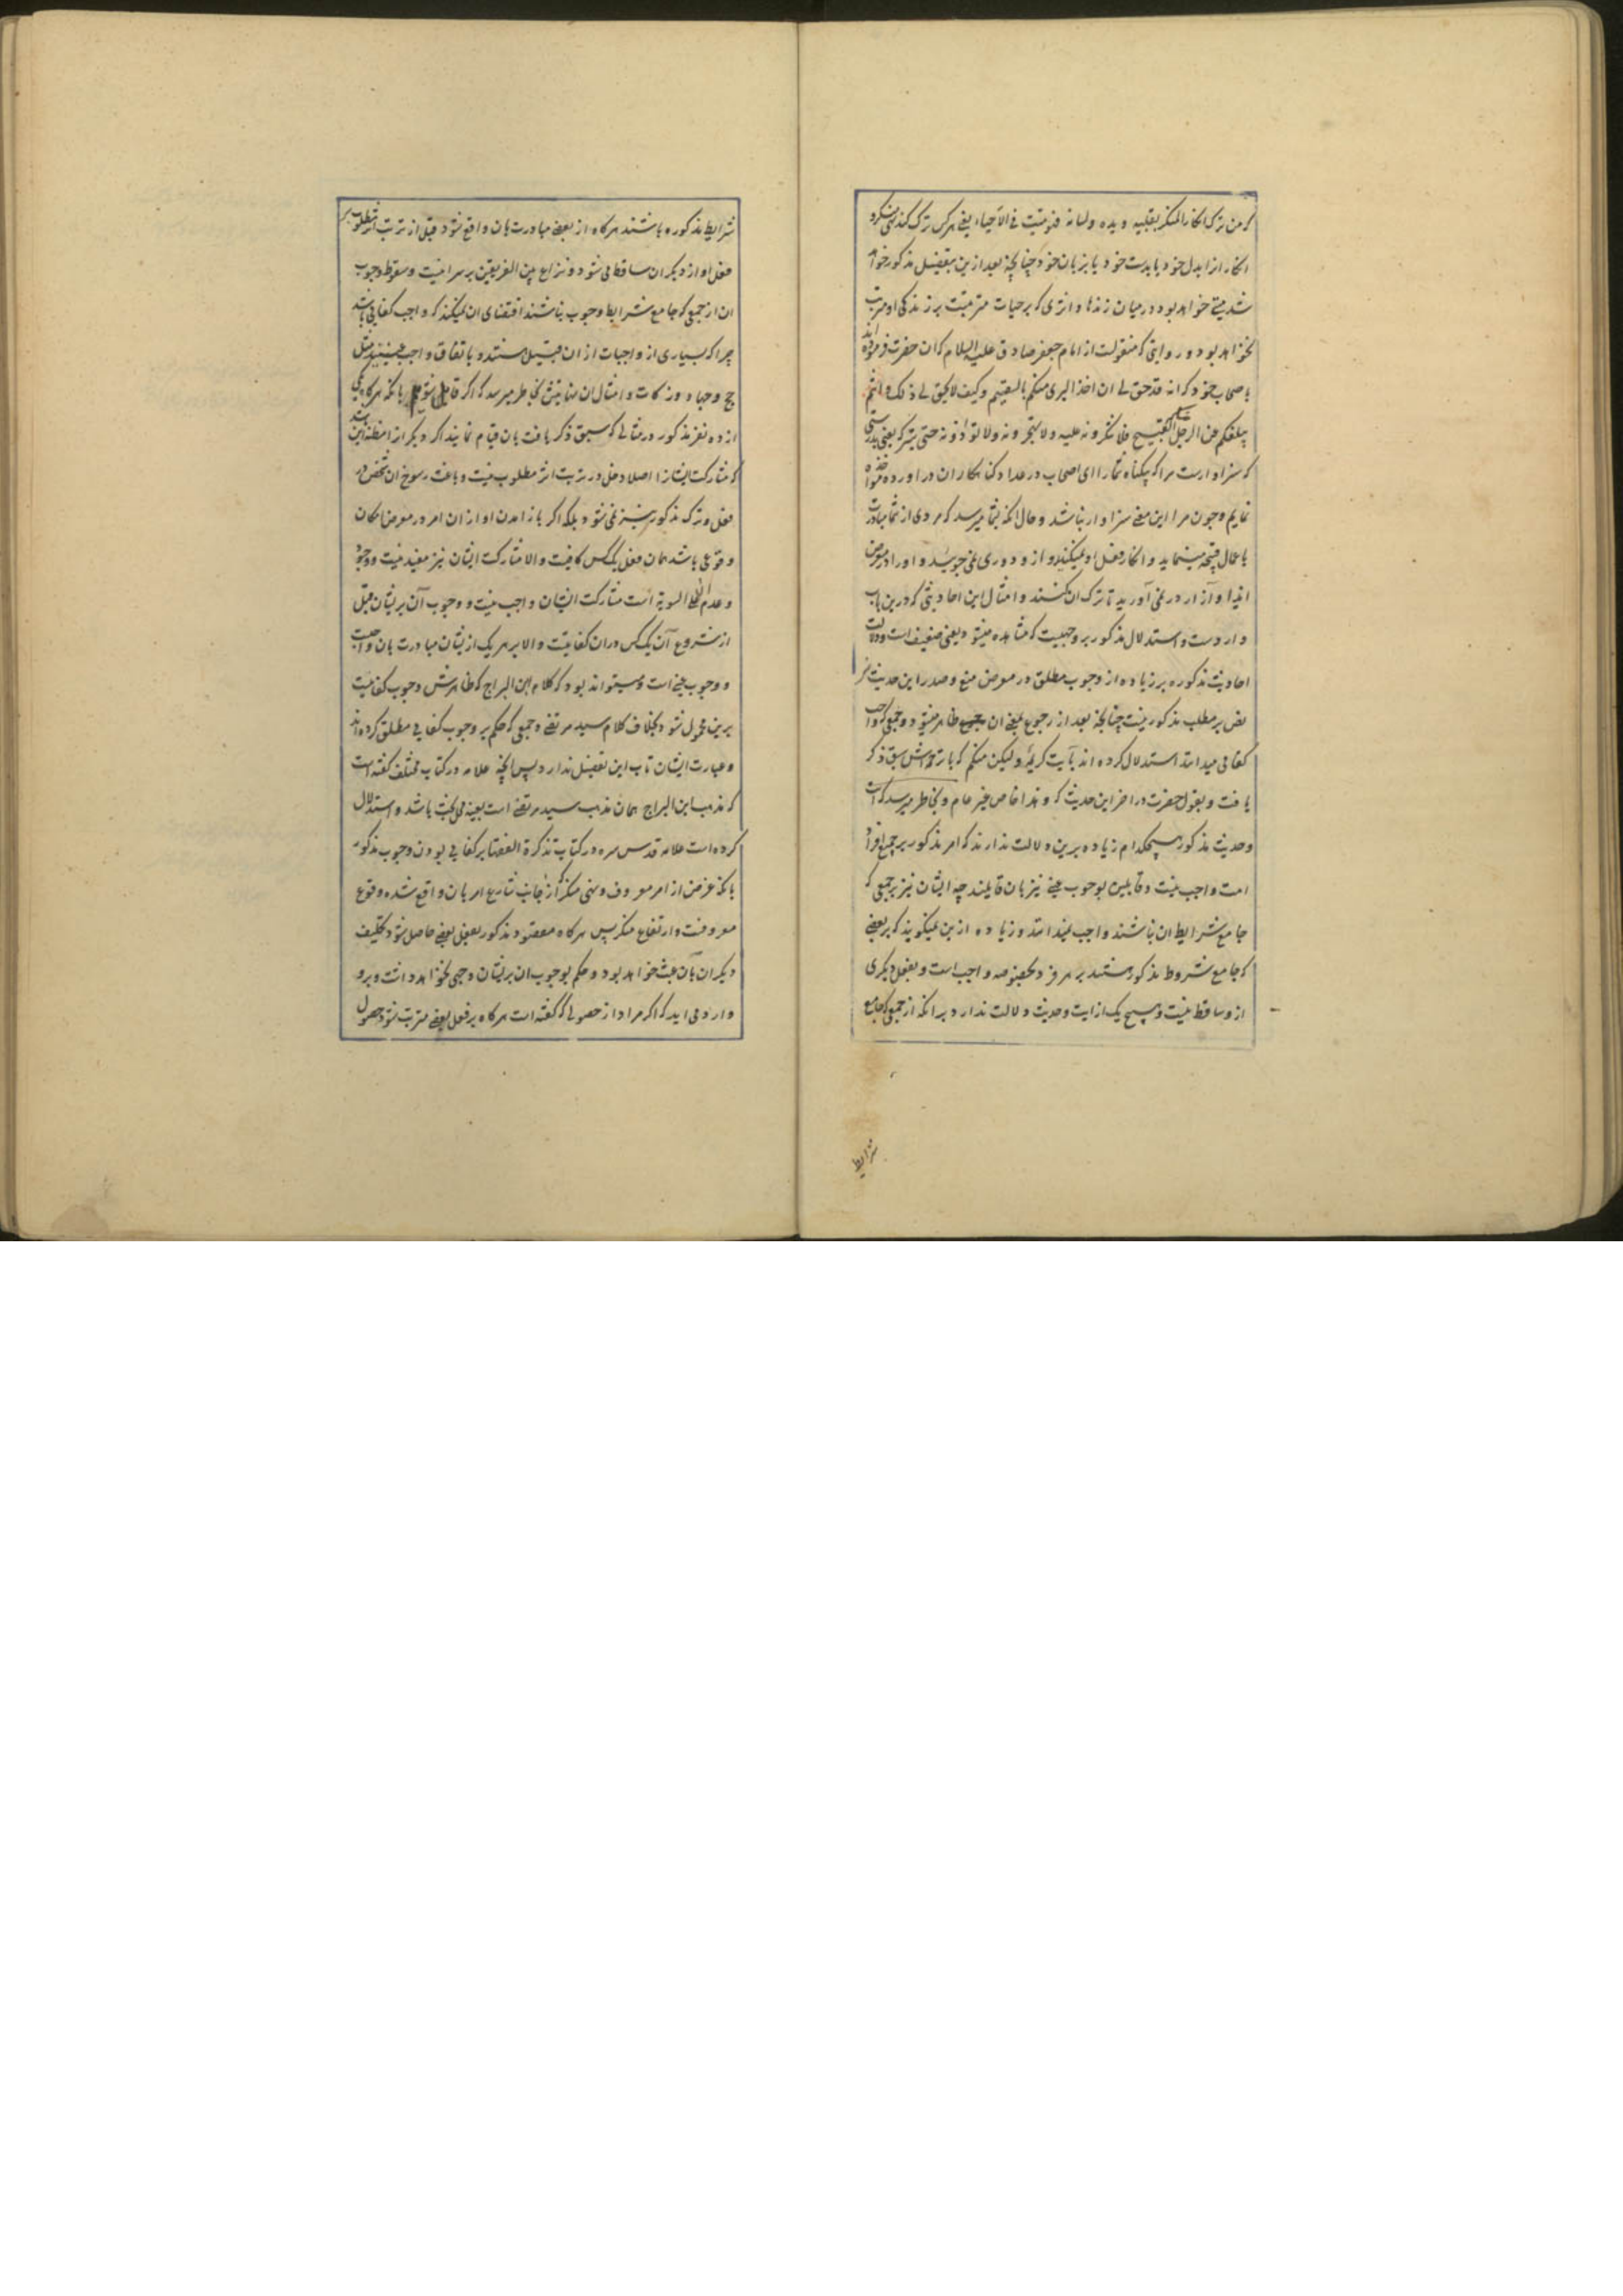 که من ترک انکار المنکر بقلبه و یده و لسانه فهو میّت فی الاحیاء یعنی هر کس ترک کند منکر و
انکار از ابدل خود یا بدست خود یا بزبان خود چنانچه بعد ازین بتفصیل مذکور خواهد
شد میتی خواهد بود در میان زندها و اثری که بر حیات مترتبت بر زندگی او مترتب
نخواهد بود و روایتی که منقولست از امام جعفر صادق علیه السلام که ان حضرت فرموده اند
باصحاب خود که انه قد حق لی ان اخذ البری منکم بالسقیم و کیف لا یحق لی ذلک و انتم
یبلغکم عن الرجل منکم القبیح فلا تنکرونه علیه و لا تهجرونه و لا تؤذونه حتی یترکه یعنی بدرستی
که سزاوارست مرا که بیکناه شما را ای اصحاب در عداد کناهکاران دراورده مواخذه
نمایم و چون مرا این معنی سزاوار نباشد و حال انکه بشما میرسد که مردی از شما مبادرت
باعمال قبیحه مینماید و انکار فعل او نمیکنید و از و دوری نمی جوئید و او را در معرض
ایذا و آزار در نمی آورید تا ترک ان کند و امثال این احادیثی که درین باب
واردست و استدلال مذکور بر وجهیست که مشاهده میشود یعنی ضعیف است و دلالت
احادیث مذکوره بر زیاده از وجوب مطلق در معرض منع و صدر این حدیث نیز
نص بر مطلب مذکور نیست چنانچه بعد از رجوع بمعنی ان ظاهر میشود و جمعی که واجب
کفائی میدانند استدلال کرده اند بآیت کریمهٔ ولیکن منکم که با ترجمه اش سبق ذکر
یافت و بقول حضرت در اخر این حدیث که و هذا خاص غیر عام و بخاطر میرسد که آیت
و حدیث مذکور هیچکدام زیاده برین دلالت ندارند که امر مذکور بر جمیع افراد
امت واجب نیست و قایلین بوجوب عینی نیز بان قایلند چه ایشان نیز بر جمعی که
جامع شرایط ان نباشند واجب نمیدانند و زیاده ازین نمیکویند که بر بعضی
که جامع شروط مذکور هستند بر هر فرد بخصوصه واجب است و بفعل دیکری
از و ساقط نیست و هیچ یک از ایت و حدیث دلالت ندارد بر انکه از جمعی که جامع
شرایط
شرایط مذکوره باشند هر کاه از بعضی مبادرت بان واقع شود قبل از ترتب اثر مطلوب بر
فعل او از دیکران ساقط می شود و نزاع بین الفریقین بر سر انیست و سقوط وجوب
ان از جمعی که جامع شرایط وجوب نباشند اقتضای ان نمیکند که واجب کفائی باشد
چرا که بسیاری از واجبات ازان قبیل هستند و باتفاق واجب عینیند مثل
حج و جهاد و زکات و امثال ان نهایتش بخاطر میرسد که اکر قایل شویم بانکه هر کاه یکی
از ده نفر مذکور در مثالی که سبق ذکر یافت بان قیام نمایند اکر دیکر انرا مظنه این باشد
که مشارکت ایشانرا اصلا دخل در ترتب اثر مطلوب نیست و باعث رسوخ ان شخص در
فعل و ترک مذکور نیز نمی شود بلکه اکر باز امدن او از ان امر در معرض امکان
وقوعی باشد همان فعل یک کس کافیست و الا مشارکت ایشان نیز مفید نیست و وجود
و عدم ان علی السویة است مشارکت ایشان واجب نیست و وجوب آن بریشان قبل
از شروع آن یک کس دران کفائیست و الا بر هر یک ازیشان مبادرت بان واجبست
و وجوب عینی است و میتواند بود که کلام ابن البراج که ظاهرش وجوب کفائیست
برین محمول شود بخلاف کلام سید مرتضی و جمعی که حکم بر وجوب کفائی مطلق کرده اند
و عبارت ایشان تاب این تفصیل ندارد پس انچه علامه در کتاب مختلف کفته است
که مذهب ابن البراج همان مذهب سید مرتضی است بعینه محل بحث باشد و استدلال
کرده است علامه قدس سره در کتاب تذکرة الفقها بر کفائی بودن وجوب مذکور
بانکه غرض از امر معروف و نهی منکر که از جانب شارع امر بان واقع شده وقوع
معروفست و ارتفاع منکر پس هر کاه مقصود مذکور بفعل بعضی حاصل شود تکلیف
دیکران بآن عبث خواهد بود و حکم بوجوب ان بریشان وجهی نخواهد داشت و برو
وارد می اید که اکر مراد از حصولی که کفته است هر کاه بر فعل بعضی مترتب شود حصول